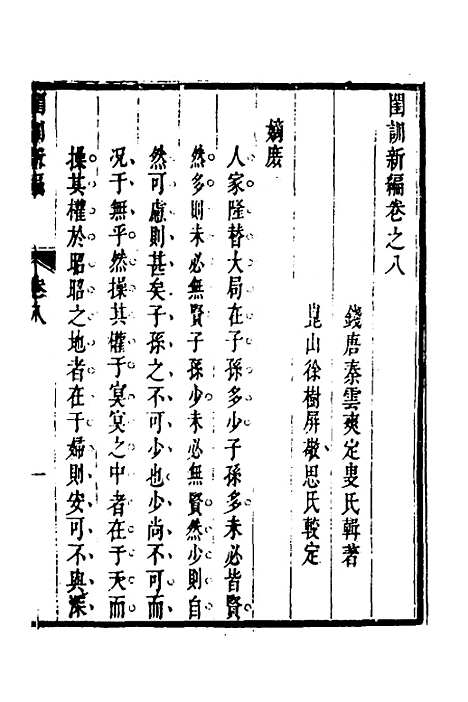 閨訓新編卷之八
錢唐秦雲爽定叟氏輯著
崑山徐樹屏敬思氏較定
嫡庶
人家隆替大局在子孫多少子孫多未必皆賢
然多則未必無賢子孫少未必無賢然少則自
然可慮則甚矣子孫之不可少也少尚不可而
况于無乎然操其權于冥冥之中者在于天而
操其權於昭昭之地者在于婦則安可不與深
閨訓新編
卷八
一